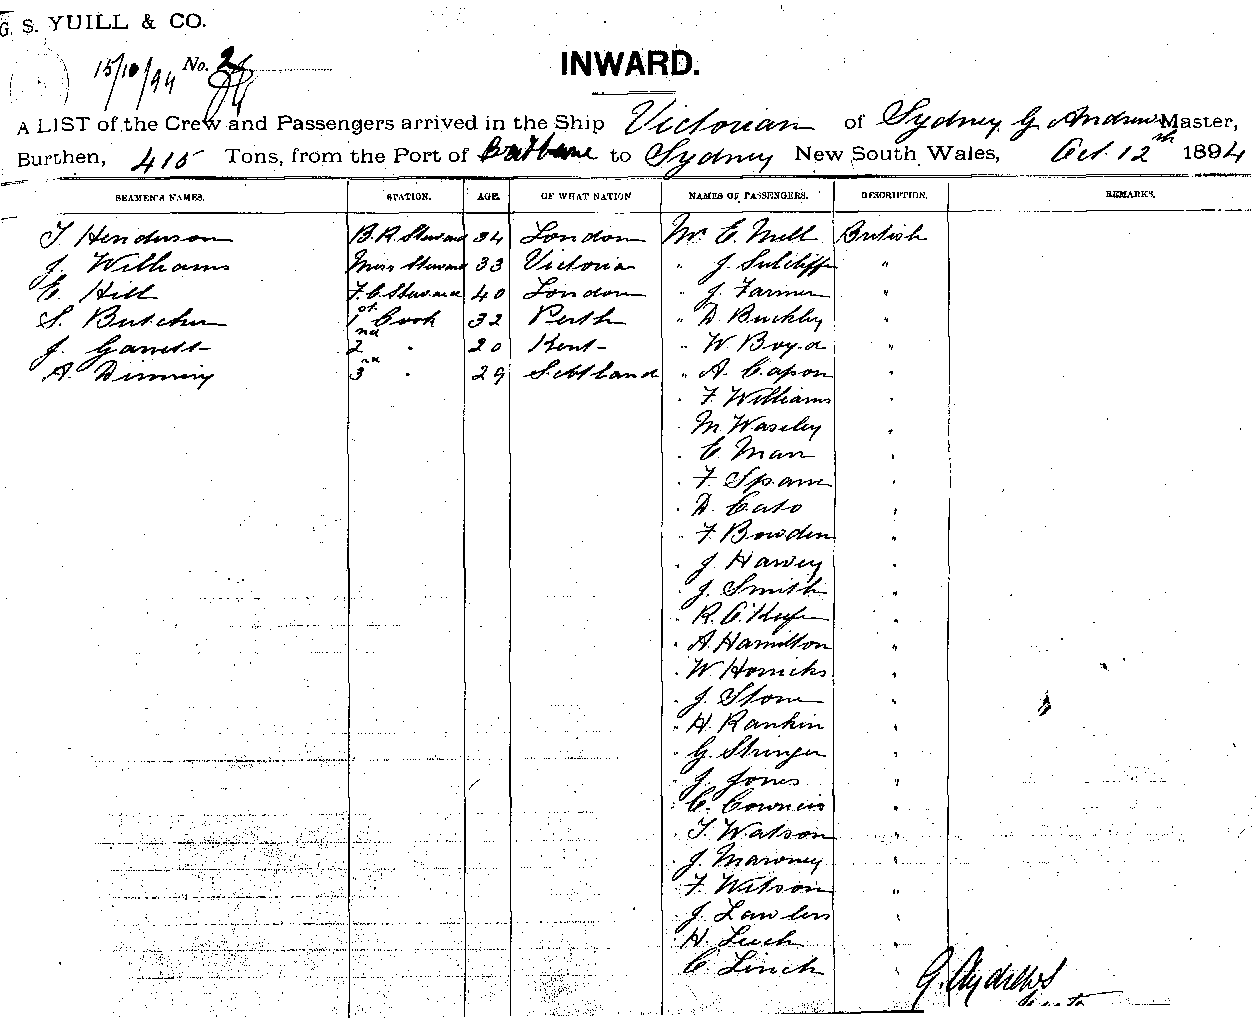 G. S. YUILL & CO.
15/10/94 No.
INWARD.
A LIST of the Crew and Passengers arrived in the Ship Victorian of Sydney G Andrews Master,
Burthen, 415 Tons, from the Port of to Sydney New South Wales, Oct. 12th 1894
SEAMEN'S NAMES. STATION. AGE. OF WHAT NATION NAMES OF PASSENGERS. DESCRIPTION. REMARKS.
T Henderson B.R. Steward 34 London Mr E. Mell British
J. Williams Mess Steward 33 Victoria " J Sutcliffe "
E. Hill F.C. Steward 40 London " J. Farmer "
S. Butcher 1st Cook 32 Perth " D Buckley "
J. Garrett 2nd " 20 Kent " W Boyd "
A. 3rd " 29 Scotland " A. Capon "
" F Williams "
" M "
" E. Man "
" F "
" D. Cato "
" F Bowden "
" J Harvey "
" J. Smith "
" R. O'Keefe "
" A. Hamilton "
" W. Horricks "
" J. Stone "
" H. Rankin "
" G. Stringer "
" J. Jones "
" C. "
" T. Watson "
" J. Maroney "
" F. Wilson "
" J. Lawless "
" H. "
" C. Linch "
G. Andrews